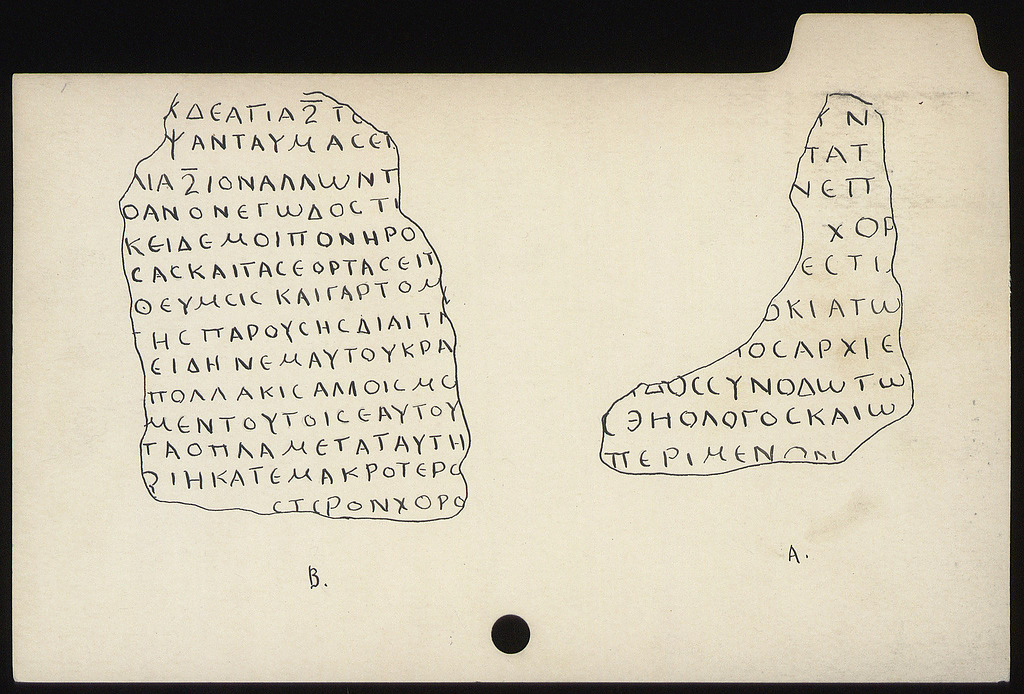 ΚΔΕΑΓΙΑΞΤΟ
ΨΑΝΤΑΥΜΑCΕΙ
ΛΙΑΞΙΟΝΑΛΛΩΝΤ
ΟΑΝΟΝΕΓΩΔΟCΤΙ
ΚΕΙΔΕΜΟΙΠΟΝΗΡΟ
CΑCΚΑΙΤΑCΕΟΡΤΑCΕΙΠ
ΘΕΥΜCΙC ΚΑΙΓΑΡΤΟΜ
ΤΗCΠΑΡΟΥCΗCΔΙΑΙΤΗ
ΕΙΔΗΝΕΜΑΥΤΟΥΚΡΑ
ΠΟΛΛΑΚΙCΑΛΛΟΙCΜC
ΜΕΝΤΟΥΤΟΙCΕΑΥΤΟΥ
ΤΑΟΠΛΑΜΕΤΑΤΑΥΤΗ
ΡΙΗΚΑΤΕΜΑΚΡΟΤΕΡΟ
CΤΕΡΟΝΧΟΡΟ
B.
ΥΝ
ΤΑΤ
ΝΕΠ
ΧΟΡ
ΕCΤΙ
ΟΚΙΑΤΩ
ΙΟCΑΡΧΙΕ
ΟCCΥΝΟΔΩΤΩ
ΗΟΛΟΓΟCΚΑΙΩ
ΠΕΡΙΜΕΝ
A.